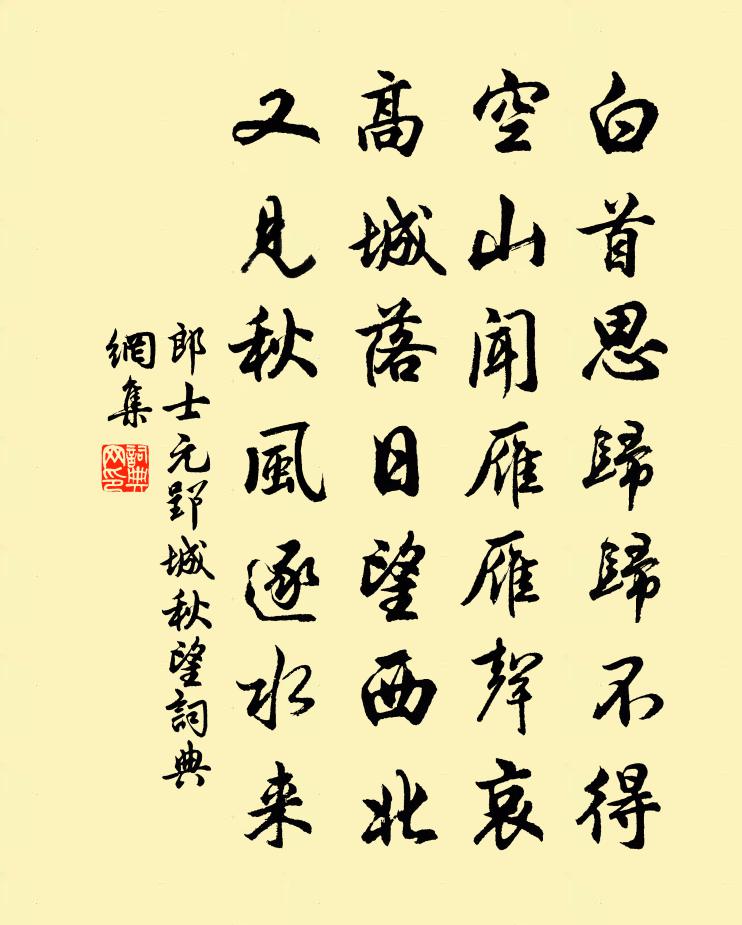 白首思歸歸不得
空山聞雁雁聲哀
高城落日望西北
又見秋風逐水来
郎士元郢城秋望詞典
網集
詞典
网印